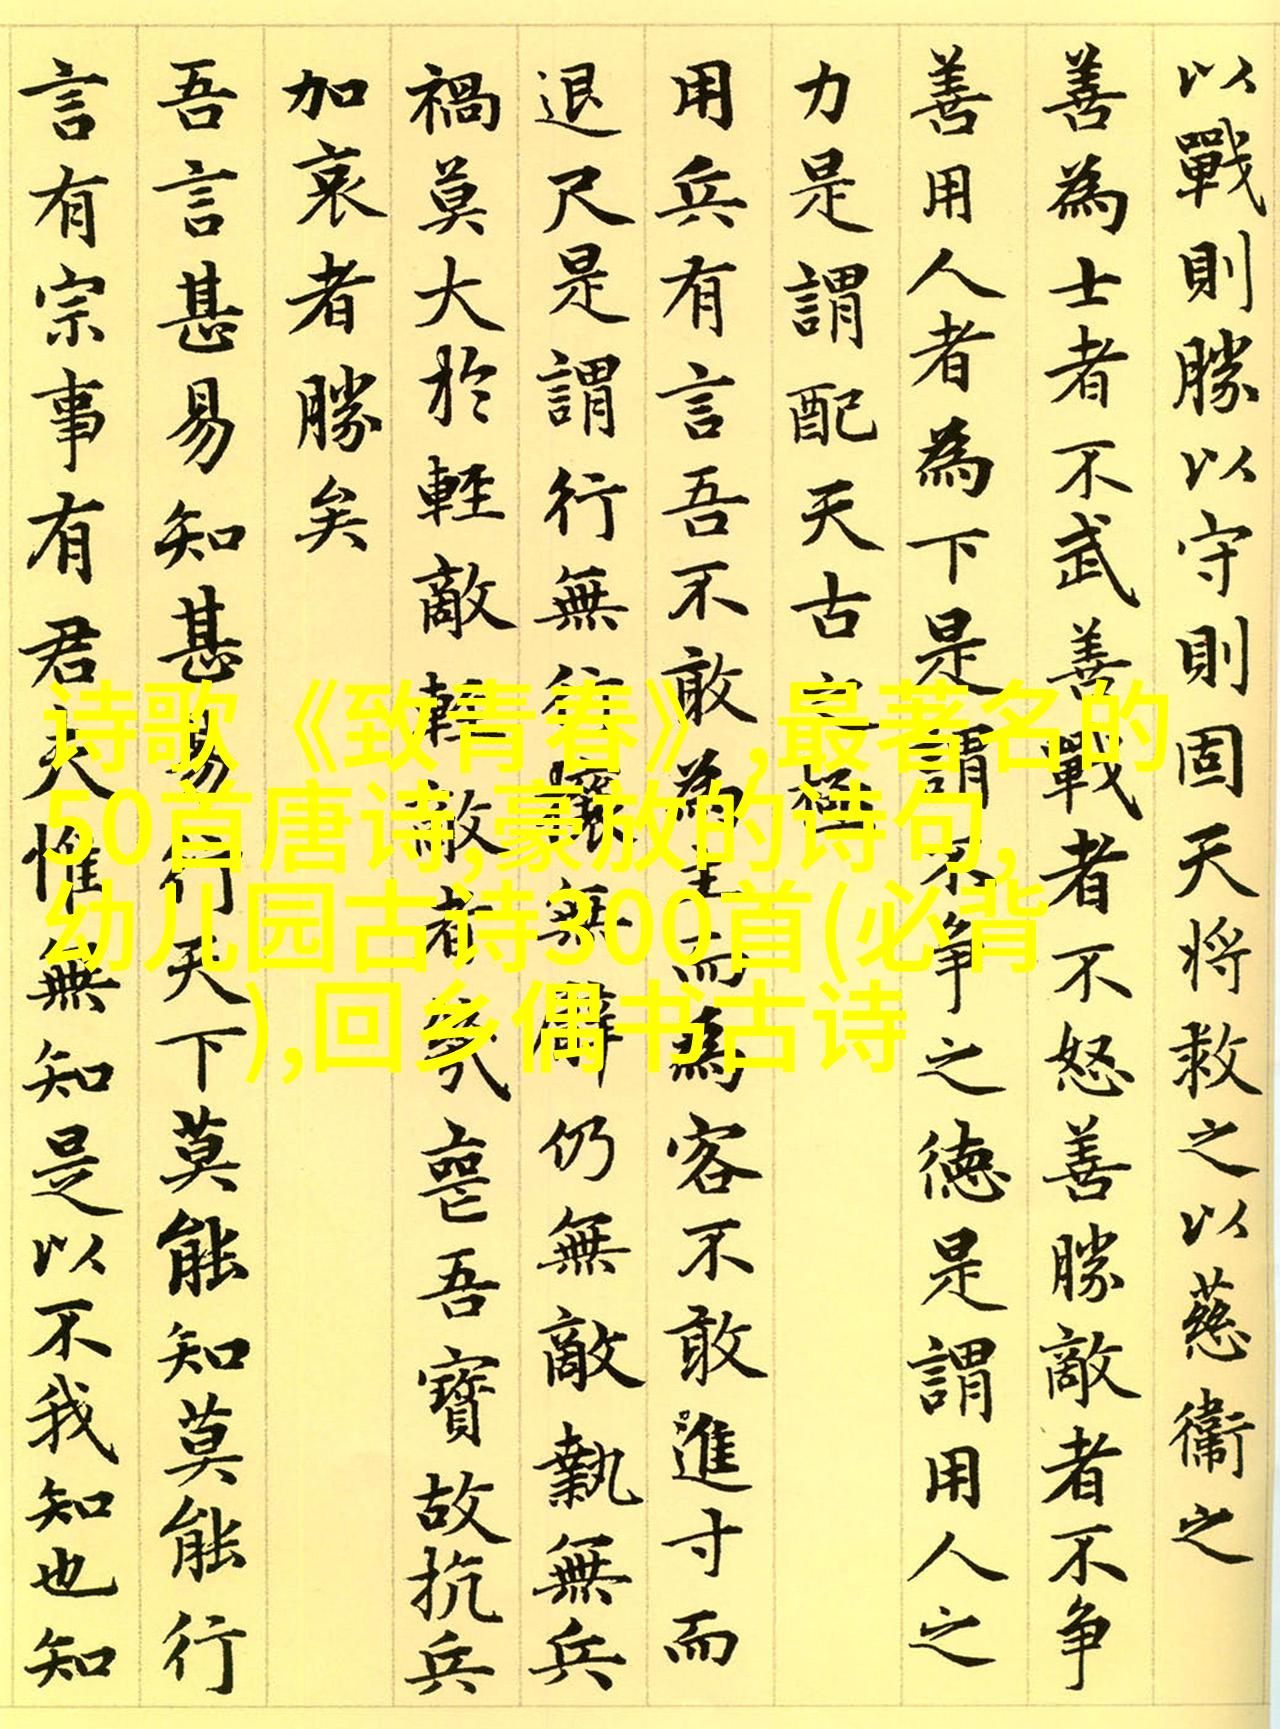 以戰則勝以守則固天将救之以慈衞之
善為士者不武善戰者不怒善勝敵者不争
善用人者為下是謂不争之德是謂用人之
力是謂配天古之極
用兵有言吾不敢為主而為客不敢進寸而
退尺是謂行無行攘無臂仍無敵執無兵
禍莫大於輕敵輕敵者幾喪吾寳故抗兵
加哀者勝矣
吾言甚易知甚易行天下莫能知莫能行
言有宗事有君夫惟無知是以不我知也知
诗歌《致青春》,最著名的
50首唐诗,豪放的诗句,
幼儿园古诗300首(必背
),回乡偶书古诗